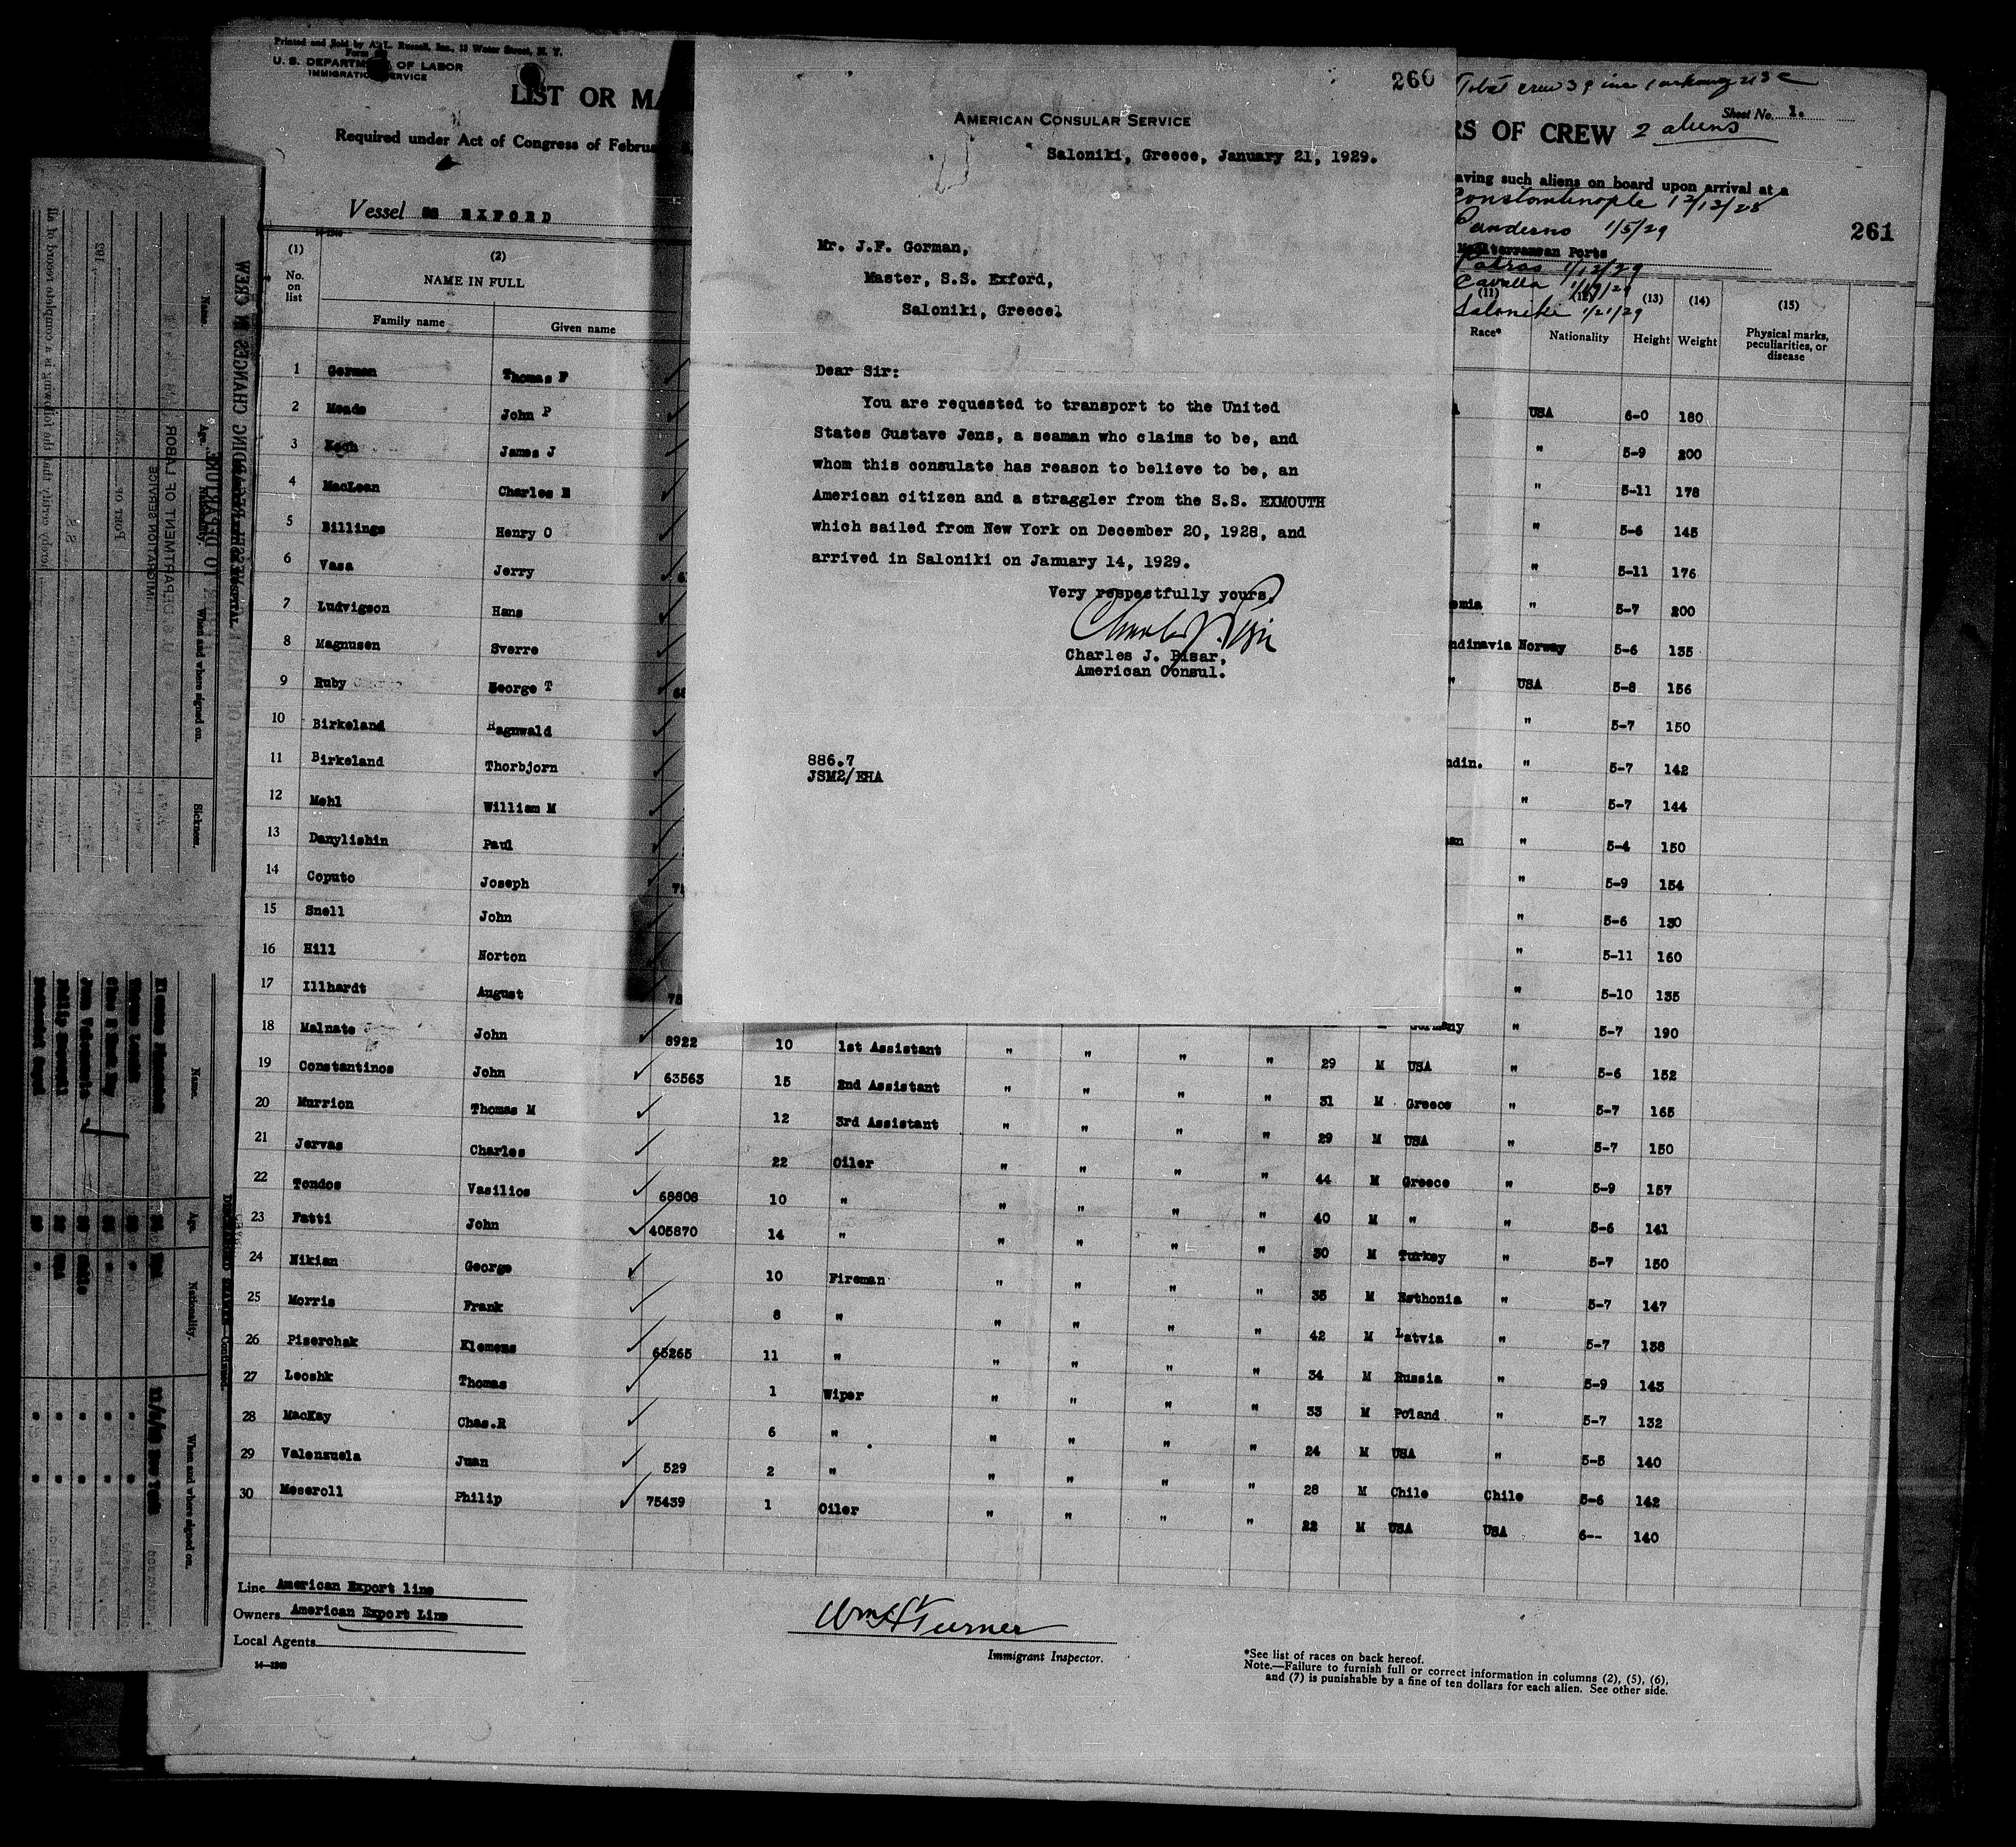 Printed and Sold by A. L. Russell, Inc., 13 Water Street, N. Y.
Form
U. S. DEPARTMENT OF LABOR
IMMIGRATION SERVICE
LIST OR MA
Required under Act of Congress of Februa
Vessel SS EXFORD
260
AMERICAN CONSULAR SERVICE
Saloniki, Greece, January 21, 1929.
Mr. J.F. Gorman,
Master, S.S. Exford,
Saloniki, Greece.
Dear Sir:
You are requested to transport to the United
States Gustave Jens, a seaman who claims to be, and
whom this consulate has reason to believe to be, an
American citizen and a straggler from the S.S. EXMOUTH
which sailed from New York on December 20, 1928, and
arrived in Saloniki on January 14, 1929.
Very respectfully yours,
Charles J. Pisar,
American Consul.
886.7
JSM2/EHA
Total crew 39 inc
Sheet No. 1.
RS OF CREW 2 aliens
aving such aliens on board upon arrival at a
Constantinople 12/12/28
Panderno 1/5/29
261
Mediterranean Ports
Patras 1/12/29
Cavalla
Salonike 1/21/29
(1) No. on list
(2) NAME IN FULL
Family name Given name
(11) Race*
Nationality
(13) Height
(14) Weight
(15) Physical marks, peculiarities, or disease
1 Gorman Thomas F USA 6-0 180
2 Meade John P " 5-9 200
3 Koch James J " 5-11 178
4 MacLean Charles E " 5-6 145
5 Billings Henry O " 5-11 176
6 Vasa Jerry emia " 5-7 200
7 Ludvigson Hans ndinavia Norway 5-6 135
8 Magnusen Sverre " USA 5-8 156
9 Ruby George T " 5-7 150
10 Birkeland Ragnwald ndin. " 5-7 142
11 Birkeland Thorbjorn " 5-7 144
12 Mehl William M an " 5-4 150
13 Danylishin Paul " 5-9 154
14 Coputo Joseph " 5-6 130
15 Snell John " 5-11 160
16 Hill Norton " 5-10 135
17 Illhardt August Germany " 5-7 190
18 Malnate John 8922 10 1st Assistant " " " " 29 M USA " 5-6 152
19 Constantinos John 63563 15 2nd Assistant " " " " 31 M Greece " 5-7 165
20 Murrion Thomas M 12 3rd Assistant " " " " 29 M USA " 5-7 150
21 Jervas Charles 22 Oiler " " " " 44 M Greece " 5-9 157
22 Tondos Vasilios 68808 10 " " " " " 40 M " " 5-6 141
23 Fatti John 405870 14 " " " " " 30 M Turkey " 5-7 150
24 Nikian George 10 Fireman " " " " 35 M Esthonia " 5-7 147
25 Morris Frank 8 " " " " " 42 M Latvia " 5-7 138
26 Piserchak Klemens 65265 11 " " " " " 34 M Russia " 5-9 143
27 Leoshk Thomas 1 Wiper " " " " 33 M Poland " 5-7 132
28 MacKay Chas.R 6 " " " " " 24 M USA " 5-5 140
29 Valenzuela Juan 529 2 " " " " " 28 M Chile Chile 5-6 142
30 Meseroll Philip 75439 1 Oiler " " " " 22 M USA USA 6-- 140
Line American Export line
Owners American Export Line
Local Agents
14—1240
Wm H Turner
Immigrant Inspector.
*See list of races on back hereof.
Note.—Failure to furnish full or correct information in columns (2), (5), (6),
and (7) is punishable by a fine of ten dollars for each alien. See other side.